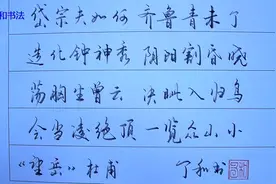 和书法
岱宗夫如何 齐鲁青未了
造化钟神秀 阴阳割昏晓
荡胸生曾云 决眦入归鸟
会当凌绝顶 一览众山小
《望岳》杜甫 丁和书